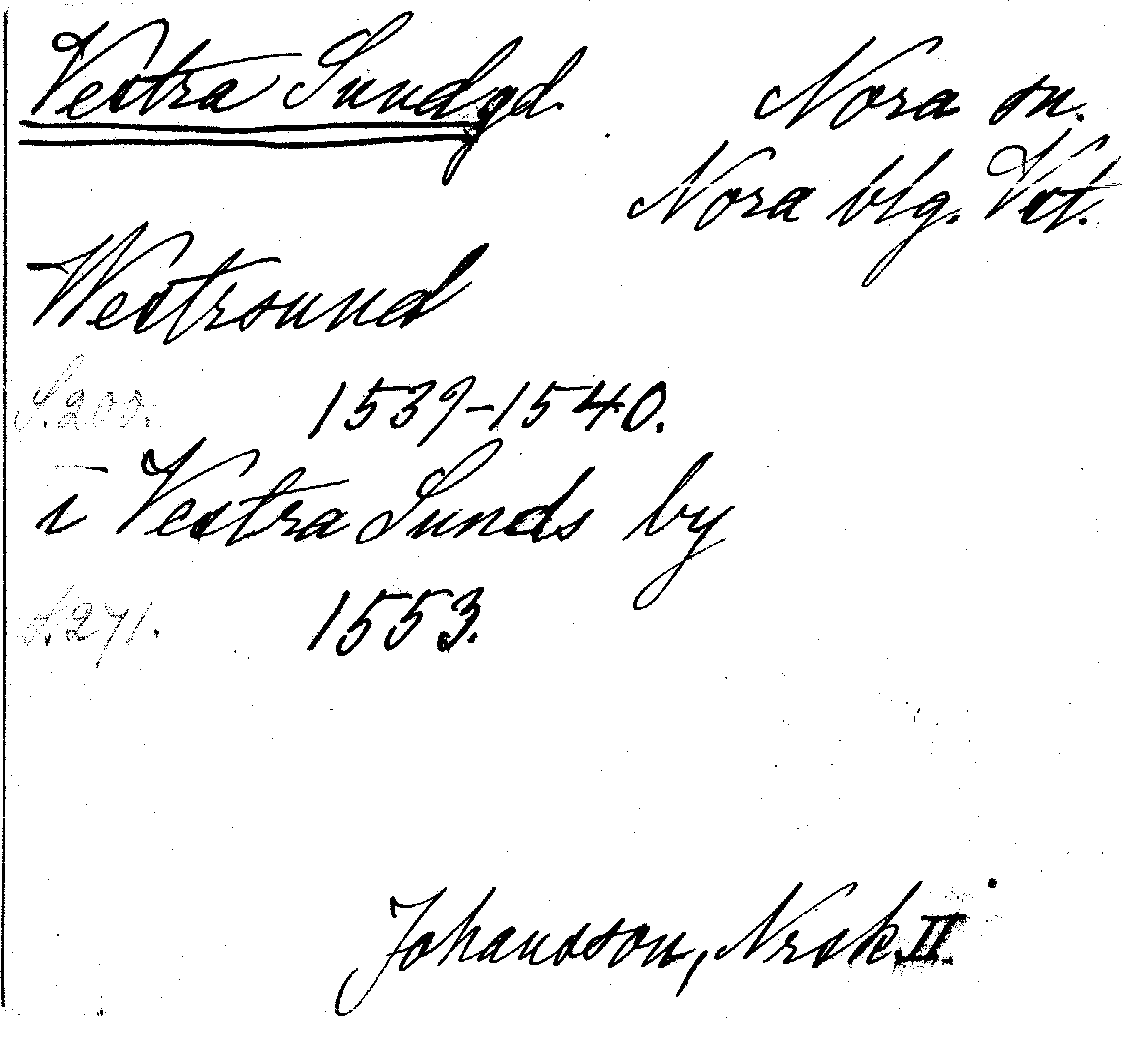 Vestra Sund gd.
Nora sn.
Nora blg. Vst.
Westrsund
S. 200. 1539-1540.
i Vestra Sunds by
S. 271. 1553.
Johansson, Nrsk. II.